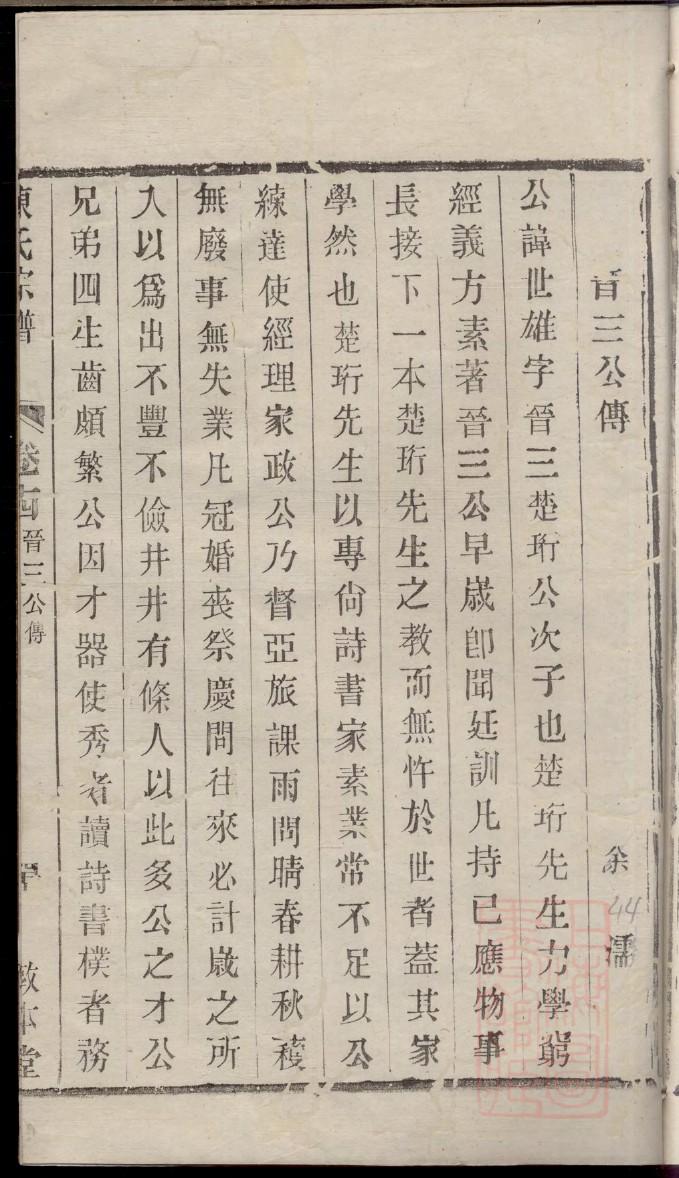 晉三公傳
余濡
44
公諱世雄字晉三楚珩公次子也楚珩先生力學窮
經義方素著晉三公早歲卽聞廷訓凡持已應物事
長接下一本楚珩先生之教而無忤於世者蓋其家
學然也楚珩先生以專尙詩書家素業常不足以公
練達使經理家政公乃督亞旅課雨問晴春耕秋穫
無廢事無失業凡冠婚喪祭慶問往來必計歲之所
入以爲出不豐不儉井井有條人以此多公之才公
兄弟四生齒頗繁公因才器使秀者讀詩書樸者務
陳氏宗譜 卷十四 晉三公傳 敦本堂